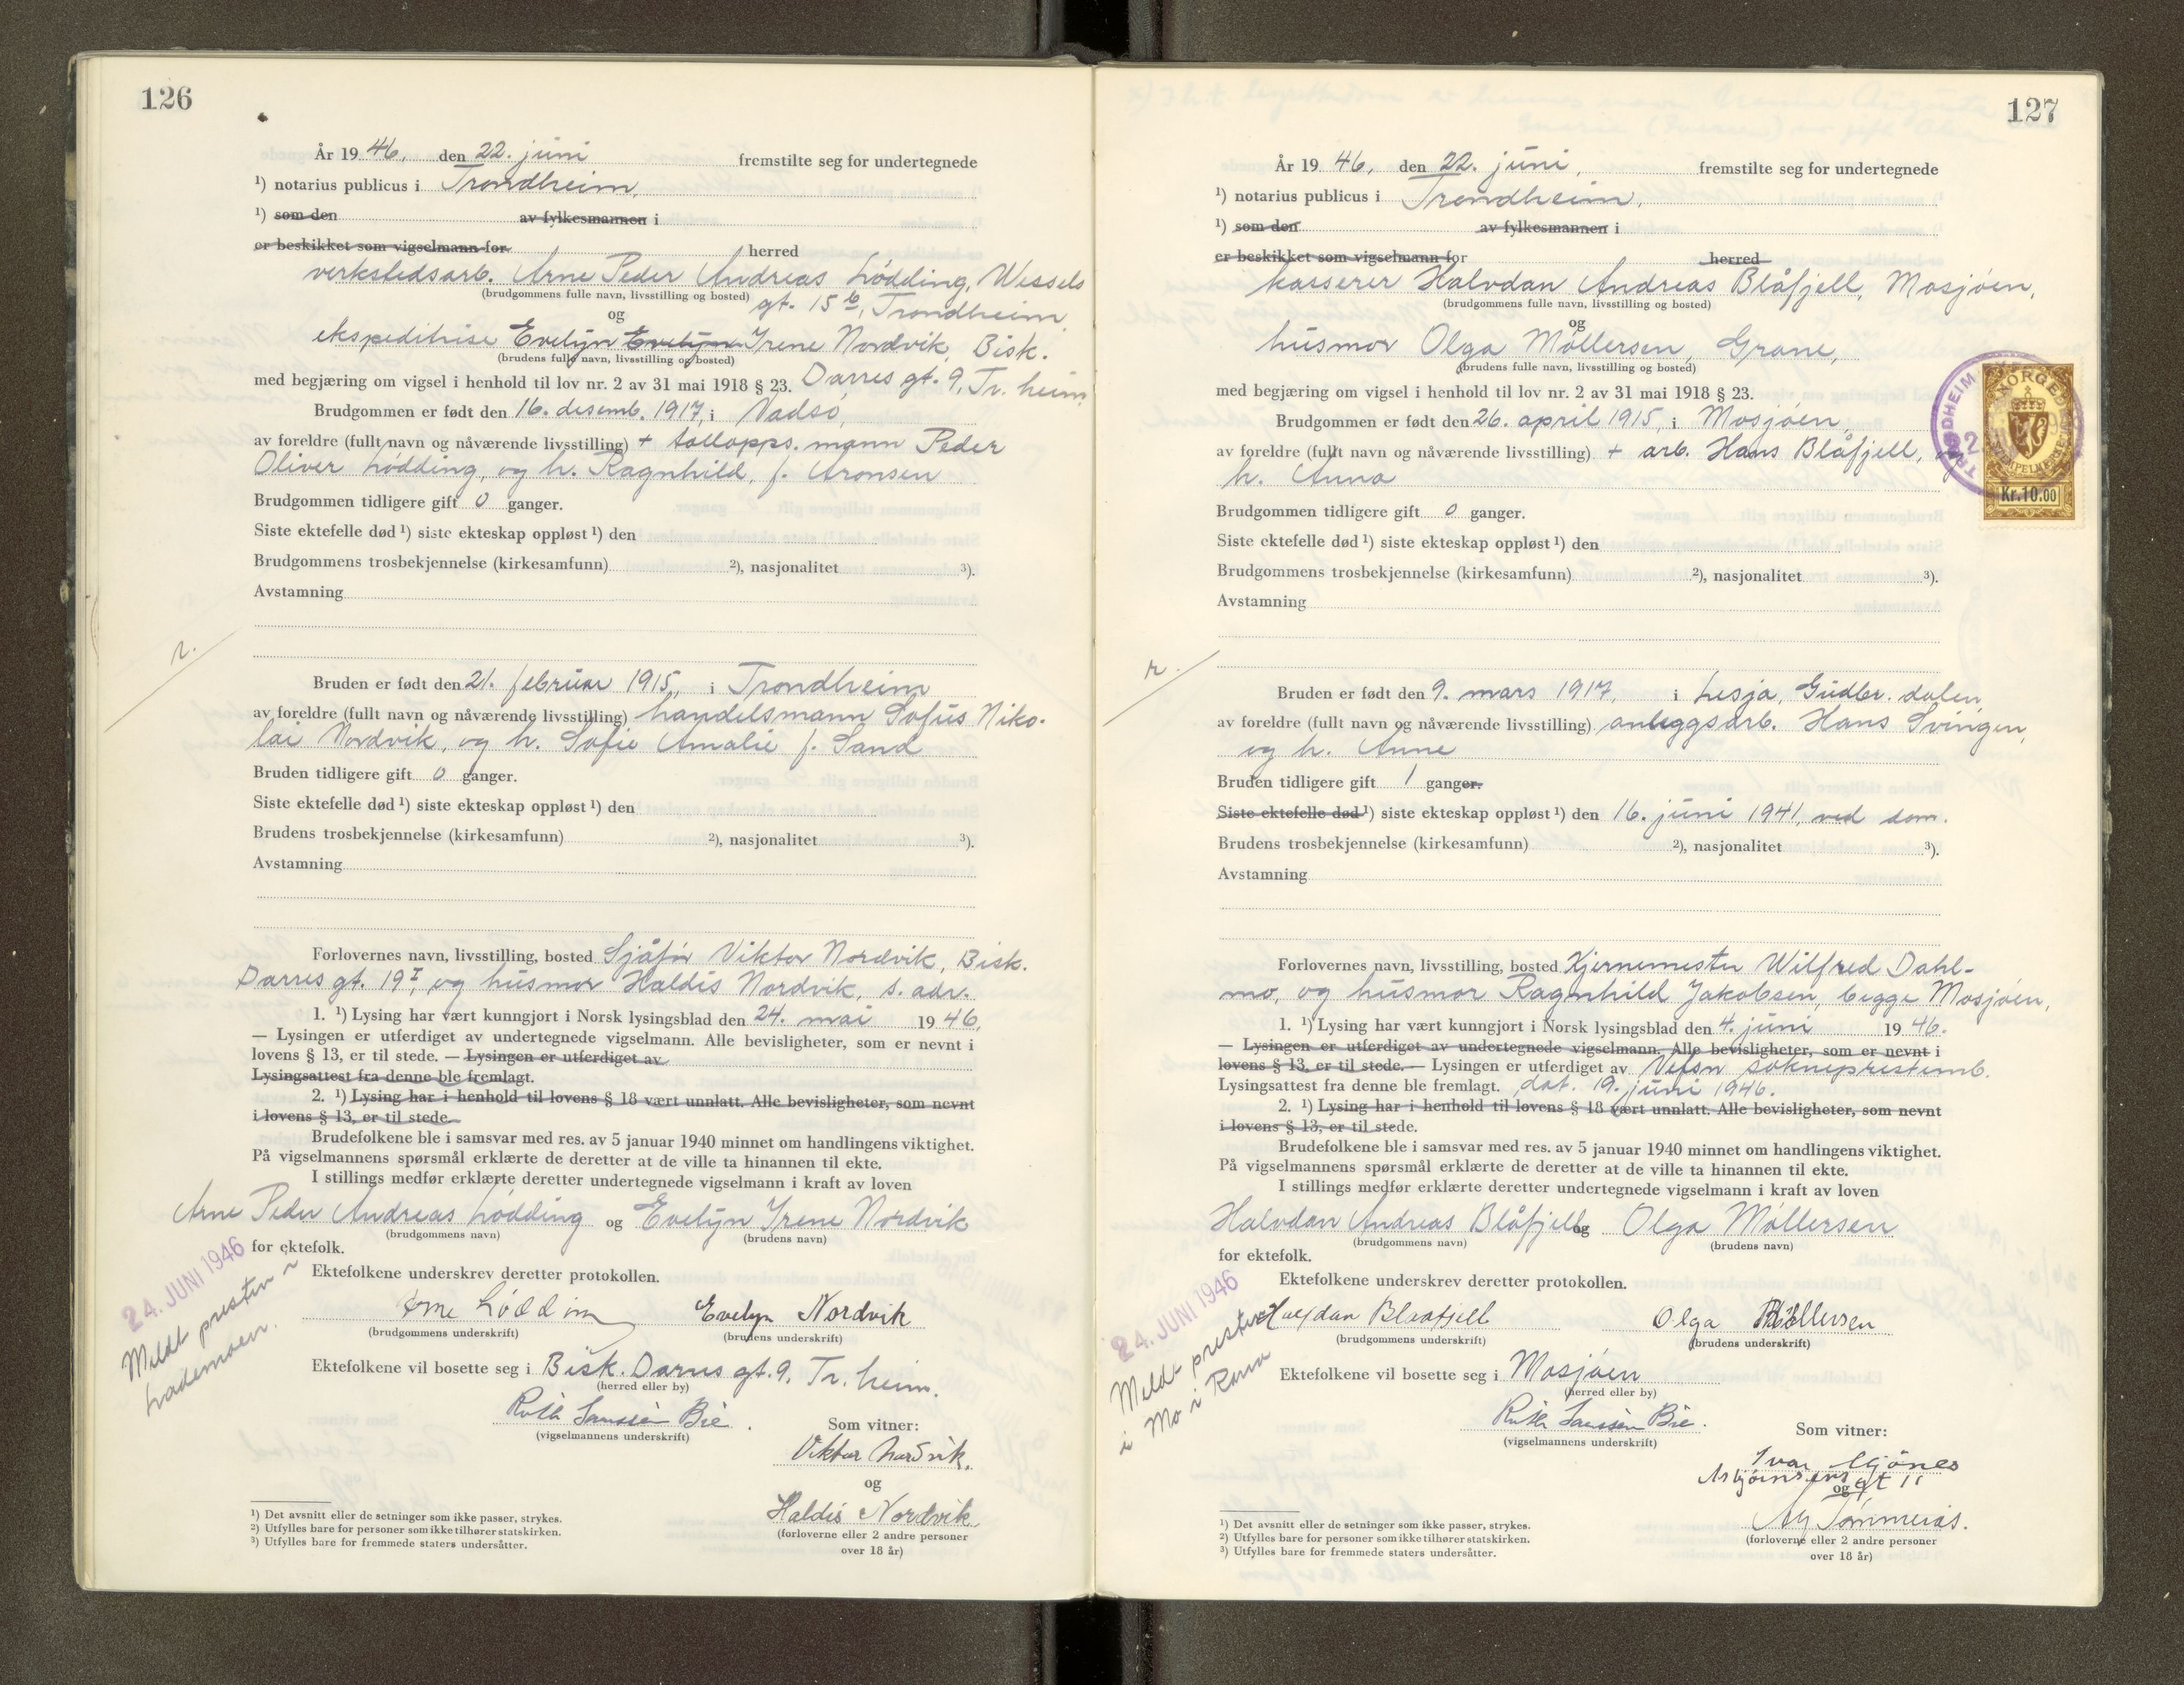 126
År 19 46, den 22. juni fremstilte seg for undertegnede
¹) notarius publicus i Trondheim,
¹) som den av fylkesmannen i
er beskikket som vigselmann for herred
verkstedsarb. Arne Peder Andreas Lødding, Wessels
(brudgommens fulle navn, livsstilling og bosted) gt. 15 b, Trondheim,
og
ekspeditrise Evelyn Evelyn Irene Nordvik, Bisk.
(brudens fulle navn, livsstilling og bosted)
med begjæring om vigsel i henhold til lov nr. 2 av 31 mai 1918 § 23. Darres gt. 9, Tr. heim
Brudgommen er født den 16. desemb. 1917, i Vadsø,
av foreldre (fullt navn og nåværende livsstilling) + tollopps. mann Peder
Oliver Lødding, og h. Ragnhild, f. Aronsen
Brudgommen tidligere gift 0 ganger.
Siste ektefelle død ¹) siste ekteskap oppløst ¹) den
Brudgommens trosbekjennelse (kirkesamfunn) ²), nasjonalitet ³).
Avstamning
r.
Bruden er født den 21. februar 1915, i Trondheim
av foreldre (fullt navn og nåværende livsstilling) handelsmann Sofus Niko-
lai Nordvik, og h. Sofie Amalie f. Sand
Bruden tidligere gift 0 ganger.
Siste ektefelle død ¹) siste ekteskap oppløst ¹) den
Brudens trosbekjennelse (kirkesamfunn) ²), nasjonalitet ³).
Avstamning
Forlovernes navn, livsstilling, bosted Sjåfør Viktor Nordvik, Bisk.
Darres gt. 19 I, og husmor Haldis Nordvik, s. adr.
1. ¹) Lysing har vært kunngjort i Norsk lysingsblad den 24. mai 19 46,
— Lysingen er utferdiget av undertegnede vigselmann. Alle bevisligheter, som er nevnt i
lovens § 13, er til stede. — Lysingen er utferdiget av
Lysingsattest fra denne ble fremlagt.
2. ¹) Lysing har i henhold til lovens § 18 vært unnlatt. Alle bevisligheter, som nevnt
i lovens § 13, er til stede.
Brudefolkene ble i samsvar med res. av 5 januar 1940 minnet om handlingens viktighet.
På vigselmannens spørsmål erklærte de deretter at de ville ta hinannen til ekte.
I stillings medfør erklærte deretter undertegnede vigselmann i kraft av loven
Arne Peder Andreas Lødding og Evelyn Irene Nordvik
(brudgommens navn) (brudens navn)
for ektefolk.
24. JUNI 1946
Meldt presten i
Lademoen.
Ektefolkene underskrev deretter protokollen.
Arne Lødding Evelyn Nordvik
(brudgommens underskrift) (brudens underskrift)
Ektefolkene vil bosette seg i Bisk. Darres gt. 9, Tr. heim.
(herred eller by)
Ruth Bie.
(vigselmannens underskrift)
Som vitner:
Viktor Nordvik.
og
Haldis Nordvik
(forloverne eller 2 andre personer
over 18 år)
¹) Det avsnitt eller de setninger som ikke passer, strykes.
²) Utfylles bare for personer som ikke tilhører statskirken.
³) Utfylles bare for fremmede staters undersåtter.
127
År 19 46, den 22. juni, fremstilte seg for undertegnede
¹) notarius publicus i Trondheim,
¹) som den av fylkesmannen i
er beskikket som vigselmann for herred
kasserer Halvdan Andreas Blåfjell, Mosjøen,
(brudgommens fulle navn, livsstilling og bosted)
og
husmor Olga Møllersen, Grane,
(brudens fulle navn, livsstilling og bosted)
med begjæring om vigsel i henhold til lov nr. 2 av 31 mai 1918 § 23.
NORGE
Kr. 10.00
Brudgommen er født den 26. april 1915, i Mosjøen,
av foreldre (fullt navn og nåværende livsstilling) + arb. Hans Blåfjell, og
h. Anna
Brudgommen tidligere gift 0 ganger.
Siste ektefelle død ¹) siste ekteskap oppløst ¹) den
Brudgommens trosbekjennelse (kirkesamfunn) ²), nasjonalitet ³).
Avstamning
r.
Bruden er født den 9. mars 1917, i Lesja, Gudbr. dalen,
av foreldre (fullt navn og nåværende livsstilling) anleggsarb. Hans Svingen,
og h. Anne
Bruden tidligere gift 1 ganger.
Siste ektefelle død ¹) siste ekteskap oppløst ¹) den 16. juni 1941, ved dom.
Brudens trosbekjennelse (kirkesamfunn) ²), nasjonalitet ³).
Avstamning
Forlovernes navn, livsstilling, bosted Kjernemester Wilfred Dahl-
mo, og husmor Ragnhild Jakobsen, begge Mosjøen,
1. ¹) Lysing har vært kunngjort i Norsk lysingsblad den 4. juni 19 46.
— Lysingen er utferdiget av undertegnede vigselmann. Alle bevisligheter, som er nevnt i
lovens § 13, er til stede. — Lysingen er utferdiget av Vefsn sokneprestemb.
Lysingsattest fra denne ble fremlagt. dat. 19. juni 1946.
2. ¹) Lysing har i henhold til lovens § 18 vært unnlatt. Alle bevisligheter, som nevnt
i lovens § 13, er til stede.
Brudefolkene ble i samsvar med res. av 5 januar 1940 minnet om handlingens viktighet.
På vigselmannens spørsmål erklærte de deretter at de ville ta hinannen til ekte.
I stillings medfør erklærte deretter undertegnede vigselmann i kraft av loven
Halvdan Andreas Blåfjell og Olga Møllersen
(brudgommens navn) (brudens navn)
for ektefolk.
24. JUNI 1946
Meldt presten
i Mo i Rana
Ektefolkene underskrev deretter protokollen.
Halfdan Blaafjell Olga Møllersen
(brudgommens underskrift) (brudens underskrift)
Ektefolkene vil bosette seg i Mosjøen
(herred eller by)
Ruth Bie.
(vigselmannens underskrift)
Som vitner:
Ivar
gt 11
og
(forloverne eller 2 andre personer
over 18 år)
¹) Det avsnitt eller de setninger som ikke passer, strykes.
²) Utfylles bare for personer som ikke tilhører statskirken.
³) Utfylles bare for fremmede staters undersåtter.